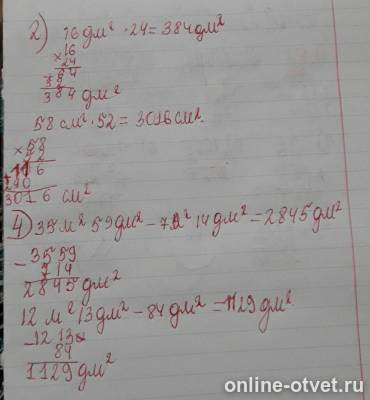 2) 16 дм² · 24 = 384 дм²
× 16
24
64
384 дм²
58 см² · 52 = 3016 см²
× 58
52
116
290
3016 см²
4) 35 м² 59 дм² - 7 м² 14 дм² = 2845 дм²
- 3559
714
2845 дм²
12 м² 13 дм² - 84 дм² = 1129 дм²
- 1213
84
1129 дм²
online-otvet.ru